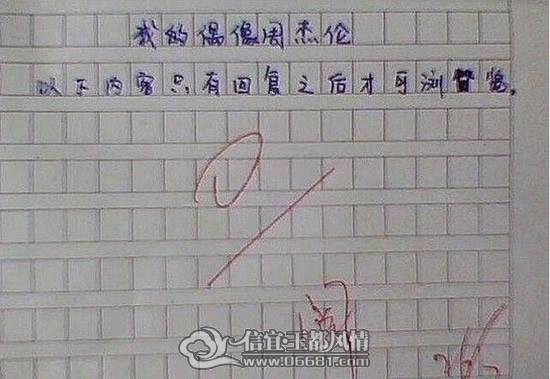 我的偶像周杰伦
以下内容只有回复之后才可浏览。
0
阅
信宜玉都风情
www.06681.com